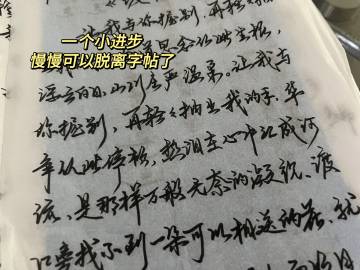 让我与你握别，再轻轻
一个小进步
慢慢可以脱离字帖了
浮云白日，山川庄严温柔。让我与
你握别，再轻轻抽出我的手，华
年从此停顿，热泪在心中汇成河
流，是那样万般无奈的凝视，渡
口旁找不到一朵可以相送的花，就